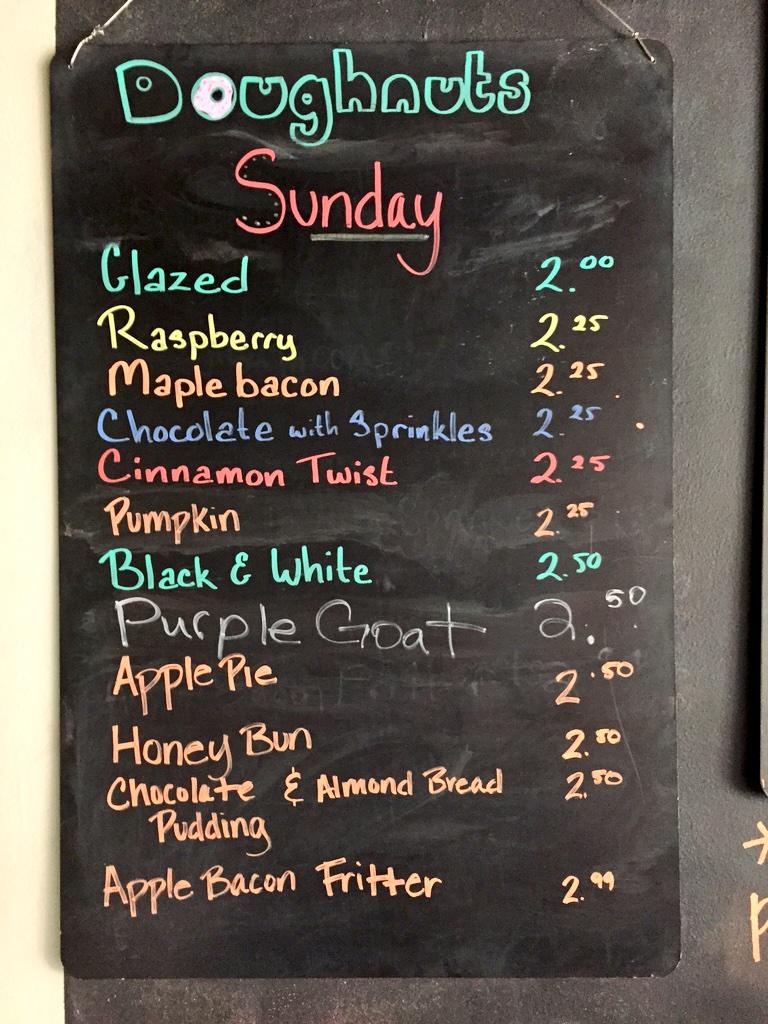 Doughnuts
Sunday
Glazed 2.00
Raspberry 2.25
Maple bacon 2.25
Chocolate with Sprinkles 2.25
Cinnamon Twist 2.25
Pumpkin 2.25
Black & White 2.50
Purple Goat 2.50
Apple Pie 2.50
Honey Bun 2.50
Chocolate & Almond Bread 2.50
Pudding
Apple Bacon Fritter 2.99